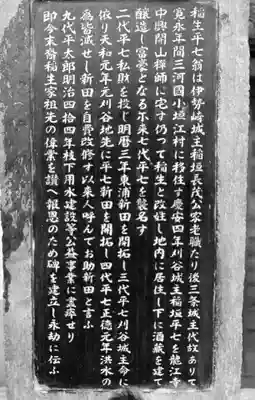 稲生平七翁は伊勢崎城主稲垣長茂公家老職たり後三条城主代故ありて
寛永年間三河國小垣江村に移住す慶安四年刈谷城主稲垣平七を熊江寺
中興開山禅師に宅す仍つて稲生と改姓し地内に居住し下に酒蔵を建て
醸造し富豪となる尓来七代平七を襲名す
二代平七私財を投じ明暦三年東浦新田を開拓し三代平七刈谷城主命に
依り天和元年元刈谷地先に平七新田を開拓し四代平七正徳元年洪水の
為皆滅せし新田を自費改修す以来人呼んでお助新田と言ふ
九代平太郎明治四拾四年枝下用水建設等公益事業に盡瘁せり
即今末裔稲生家祖先の偉業を讃へ報恩のため碑を建立し永劫に伝ふ